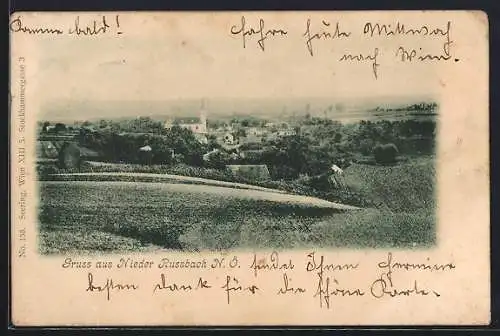 Komme bald!
Fahre heute Mittwoch
nach Wien.
No. 158. Seering, Wien XIII 5. Stockhammergasse 3
Gruss aus Nieder Russbach N. Ö. sendet Ihnen Hermine
besten Dank für die schöne Karte.